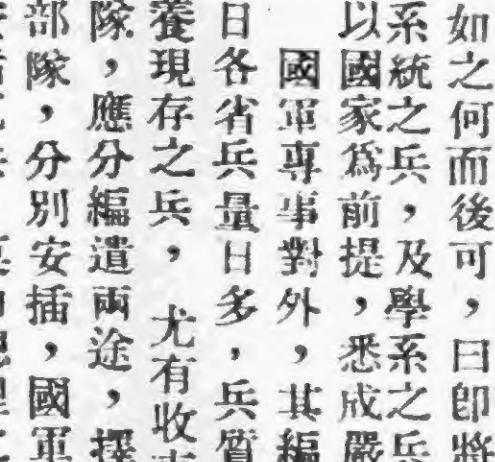 如之何而後可，曰卽將
系統之兵，及學系之兵
以國家爲前提，悉成嚴
國軍專事對外，其編
日各省兵量日多，兵質
養現存之兵，尤有收
隊，應分編遣兩途，擇
部隊，分別安插，國軍